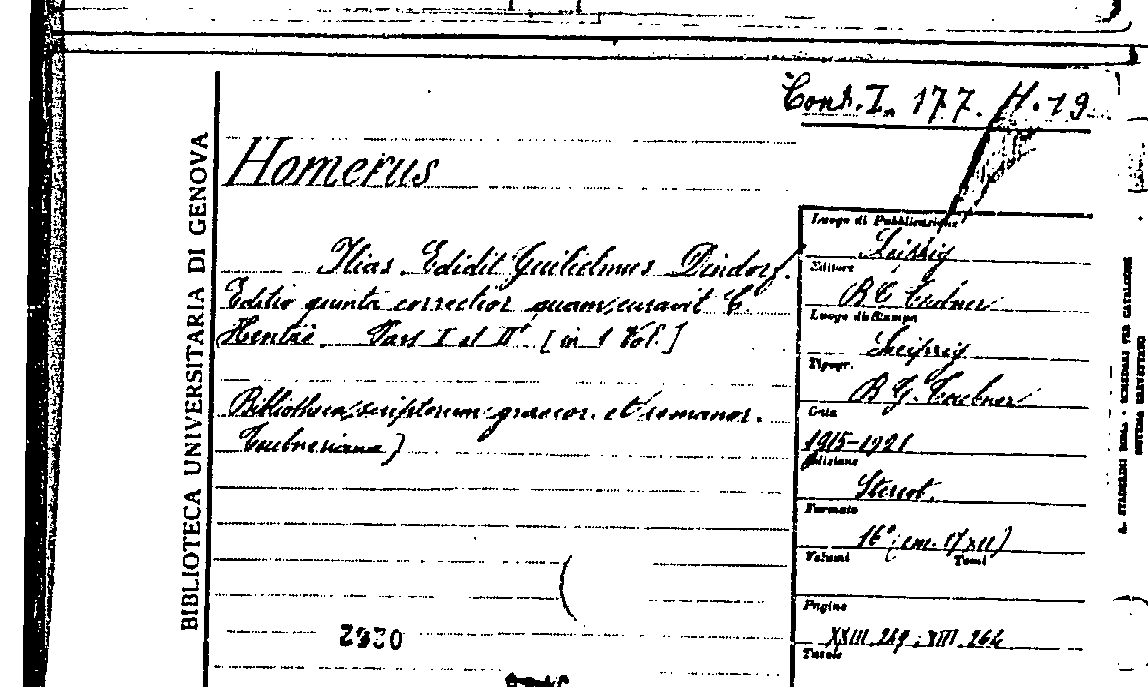 Cons. I. 177. H. 19
BIBLIOTECA UNIVERSITARIA DI GENOVA
Homerus
Ilias. Edidit Guilielmus Dindorf.
Editio quinta correctior quam curavit C.
Hentze. Pars I et II. [in 1 Vol.]
Bibliotheca scriptorum graecor. et romanor.
Teubneriana)
2920
Luogo di Pubblicazione
Leipzig
Editore
B G Teubner
Luogo di Stampa
Leipzig
Tipogr.
B G. Teubner
Data
1915-1921
Edizione
Stereot.
Formato
16° (cm.
Volumi Tomi
Pagine
XXIII.269; XIII.266
Tavole